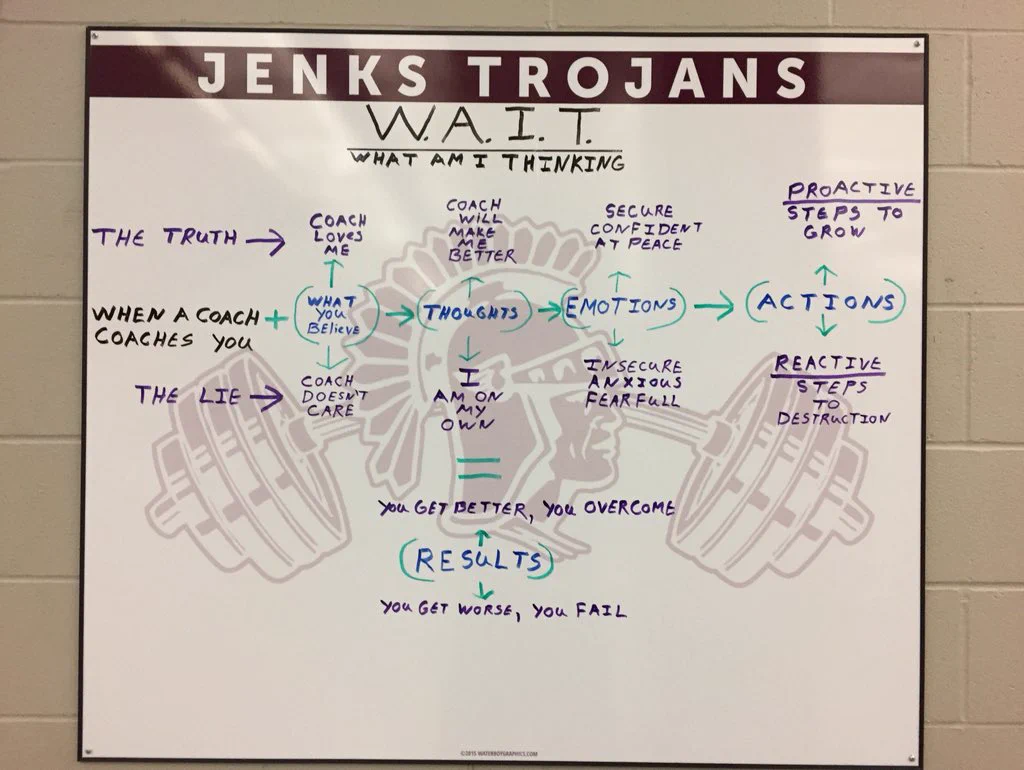 JENKS TROJANS
W.A.I.T.
WHAT AM I THINKING
THE TRUTH →
COACH
LOVES
ME
COACH
WILL
MAKE
ME
BETTER
SECURE
CONFIDENT
AT PEACE
PROACTIVE
STEPS TO
GROW
WHEN A COACH
COACHES YOU
+
(WHAT
YOU
BELIEVE)
→
(THOUGHTS)
→
(EMOTIONS)
→
(ACTIONS)
THE LIE →
COACH
DOESN'T
CARE
I
AM ON
MY
OWN
INSECURE
ANXIOUS
FEARFULL
REACTIVE
STEPS
TO
DESTRUCTION
=
YOU GET BETTER, YOU OVERCOME
(RESULTS)
YOU GET WORSE, YOU FAIL
©2015 WATERBOYGRAPHICS.COM